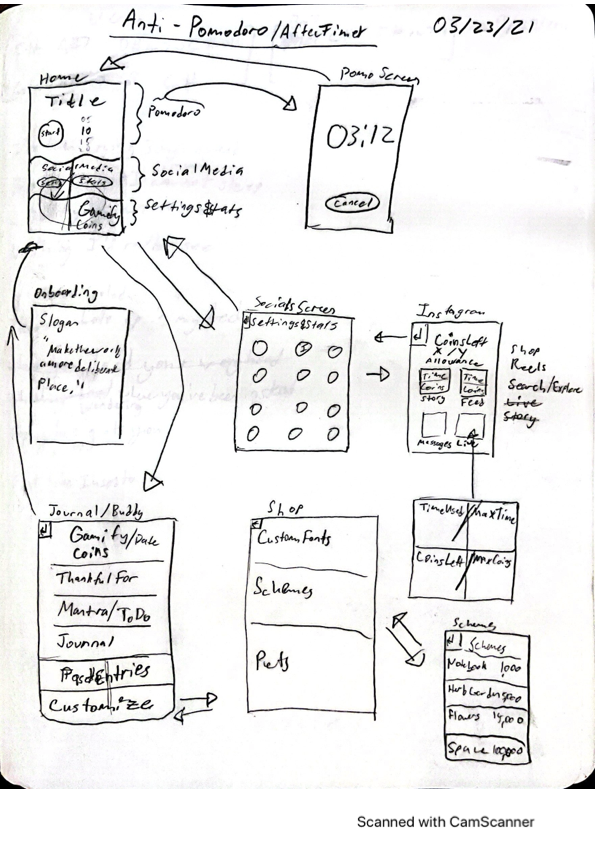 Anti-Pomodoro/AfterTimer 03/23/21
Home
Title
start
05
10
15
Social Media
Stats
Gamify
Coins
Pomodoro
Social Media
Settings$tats
Pomo Screen
03:12
Cancel
Onboarding
Slogan
"Make the world
a more deliberate
Place."
Socials Screen
Settings$Stats
Instagram
Coins Left
X / Y
Allowance
Time
Coins
Story
Time
Coins
Feed
Messages
Live
Shop
Reels
Search/Explore
Live
Story
Time Used/Max Time
Coins Left/Max Coins
Journal/Buddy
Gamify/Date
Coins
Thankful For
Mantra/ToDo
Journal
Past Entries
Customize
Shop
Custom Fonts
Schemes
Pets
Schemes
Schemes
Notebook 1,000
Herb Garden
Flowers
Space 100,000
Scanned with CamScanner